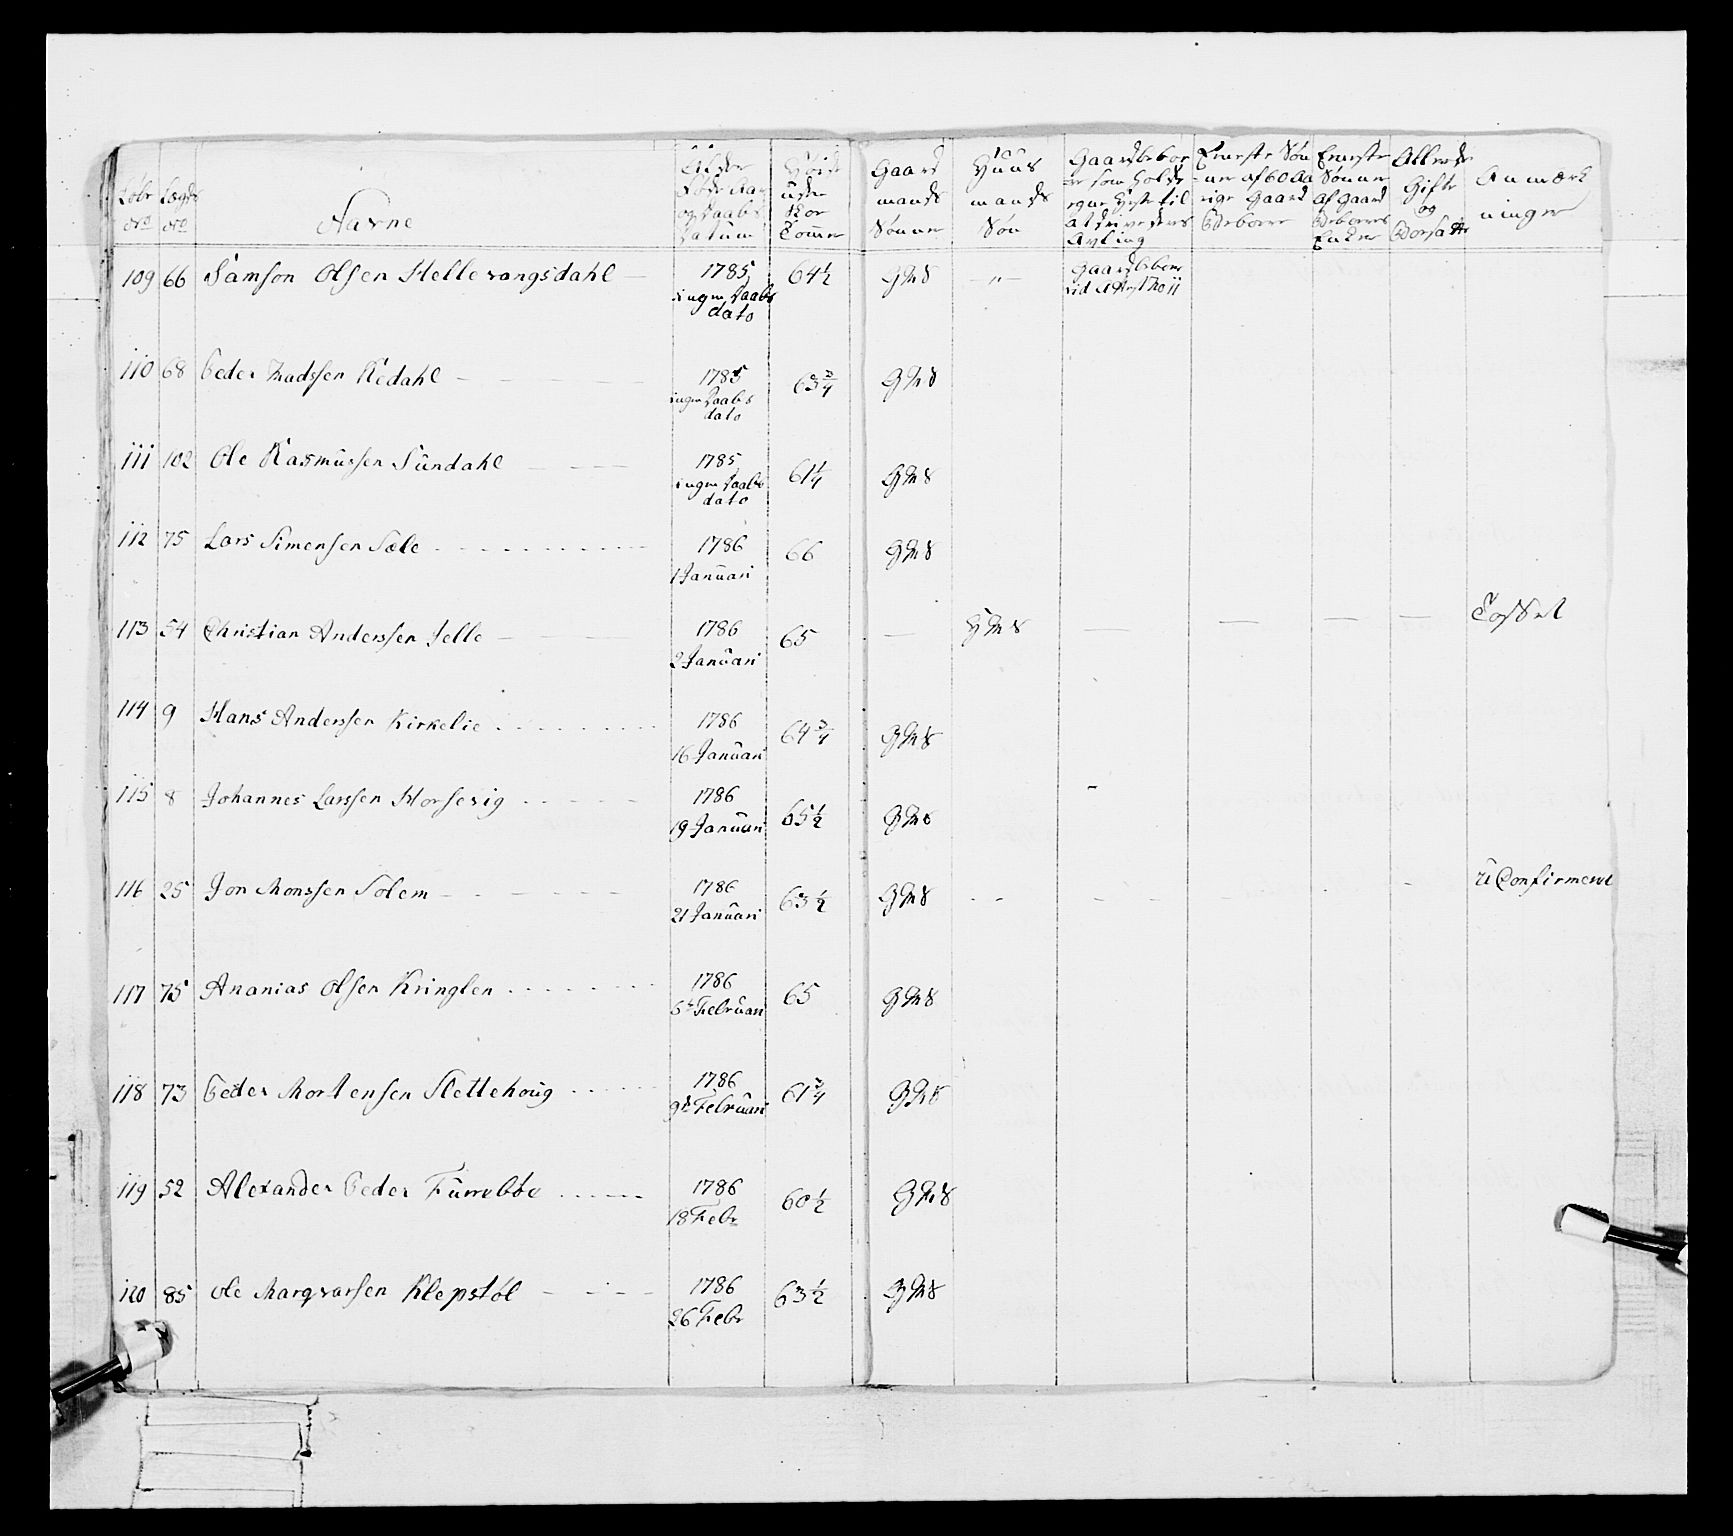 Løbe No | Lægds No | Navne | Alder Føde Aar og Daabs Datum | Høide uden Skoe Tommer | Gaard mands Sønner | Huus mands Søn | Gaardbebor er som holde egne Heste til at drive deres Avling | Eeneste Søn ner af 60 Aa rige Gaard Beboere | Eeneste Sønner af Gaard Beboeres Enker | Allerede Gifte og Bosatte | Anmærk ninger
109 66 Samson Olsen Hellevangsdahl 1785 ingen Daabs dato 64 1/2 GMS " Gaardbeboer
110 68 Peder Madssen Kedahl 1785 ingen Daabs dato 63 3/4 GMS
111 102 Ole Rasmussen Sundahl 1785 ingen Daabs dato 61 1/4 GMS
112 75 Lars Simensen Sæle 1786 1 Januari 66 GMS
113 54 Christian Anderssen Selle 1786 2 Januari 65 — HMS — — — — Tosset
114 9 Hans Anderssen Kirkelie 1786 16 Januari 64 3/4 GMS
115 8 Johannes Larssen Horsevig 1786 19 Januari 65 1/2 GMS
116 25 Jon Monssen Solem 1786 21 Januari 63 1/2 GMS UConfirmeret
117 75 Ananias Olsen Kringlen 1786 5t Februari 65 GMS
118 73 Peder Mortensen Slettehoug 1786 9d Februari 61 3/4 GMS
119 52 Alexander Peder Furrebøe 1786 18 Febr 60 1/2 GMS
120 85 Ole Marqvarsen Klepstøl 1786 26 Febr 63 1/2 GMS